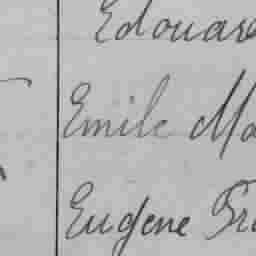 Edouar
Emile Ma
Eugene